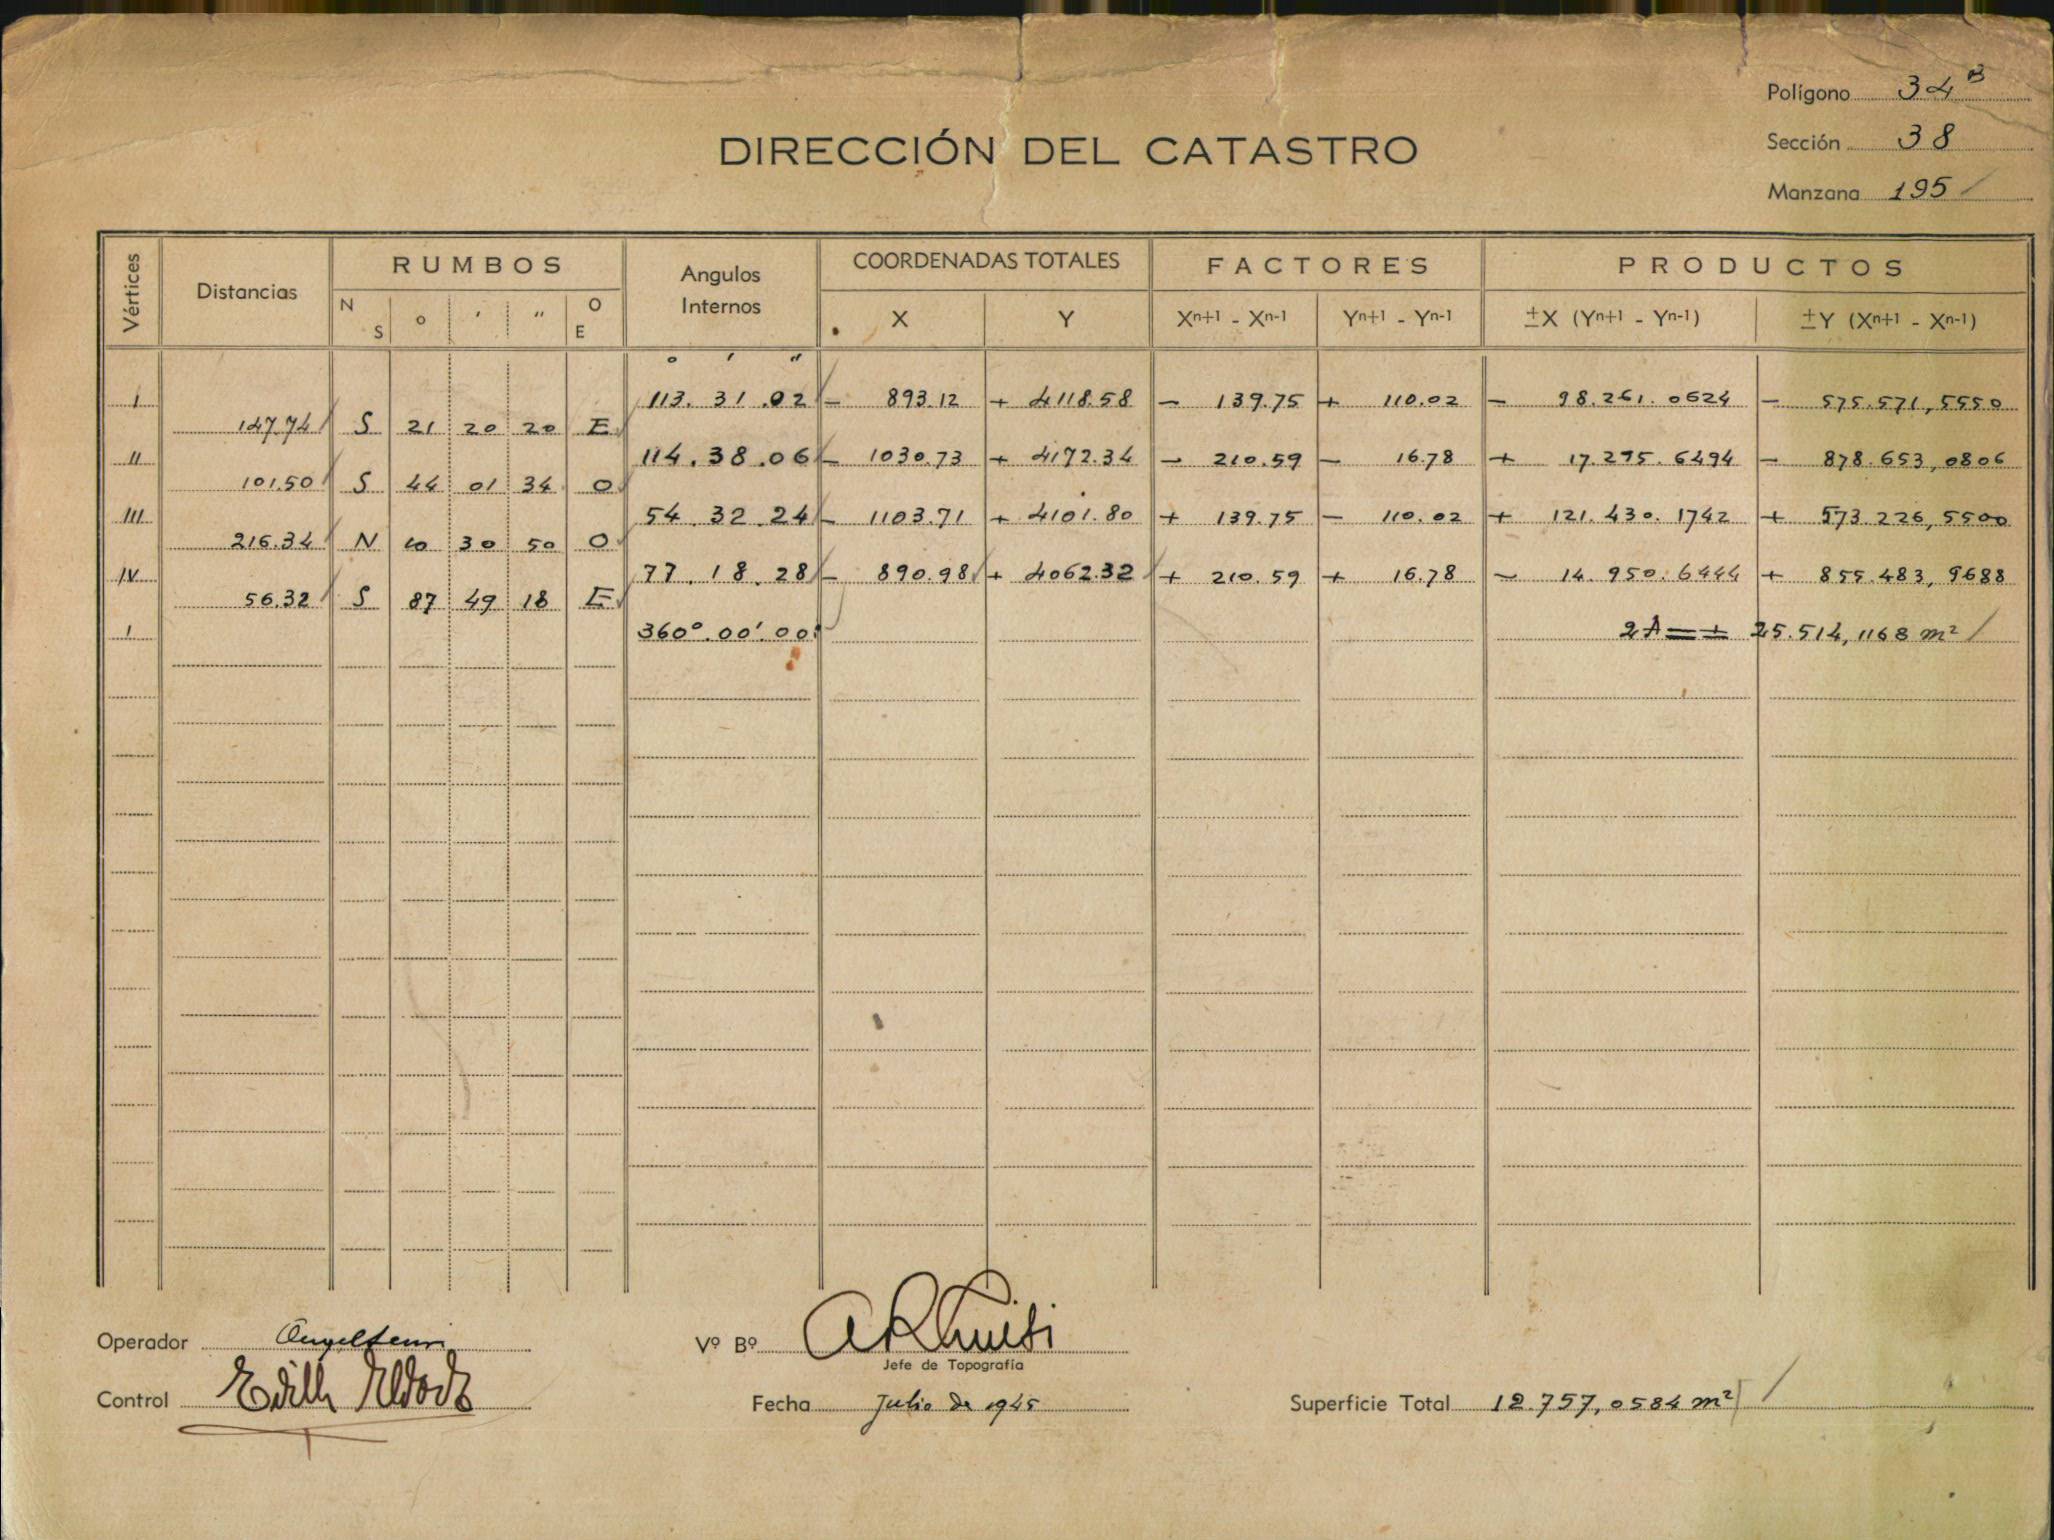 Polígono 34 B
Sección 38
Manzana 195
DIRECCIÓN DEL CATASTRO
Vértices Distancias RUMBOS Angulos Internos COORDENADAS TOTALES FACTORES PRODUCTOS
N S o ' " O E X Y Xn+1 - Xn-1 Yn+1 - Yn-1 ±X (Yn+1 - Yn-1) ±Y (Xn+1 - Xn-1)
o ' "
I 113. 31 .02 - 893.12 + 4118.58 - 139.75 + 110.02 - 98.261.0624 - 575.571,5550
147.74 S 21 20 20 E
II 114.38.06 - 1030.73 + 4172.34 - 210.59 - 16.78 + 17.295.6494 - 878.653,0806
101.50 S 44 01 34 O
III 54.32.24 - 1103.71 + 4101.80 + 139.75 - 110.02 + 121.430.1742 + 573.226,5500
216.34 N 10 30 50 O
IV 77.18.28 - 890.98 + 4062.32 + 210.59 + 16.78 - 14.950.6444 + 855.483,9688
56.32 S 87 49 18 E
I 360°.00'.00" 2A = + 25.514,1168 m²
Operador
Vº Bº
Jefe de Topografía
Control
Fecha Julio de 1945
Superficie Total 12.757,0584 m²